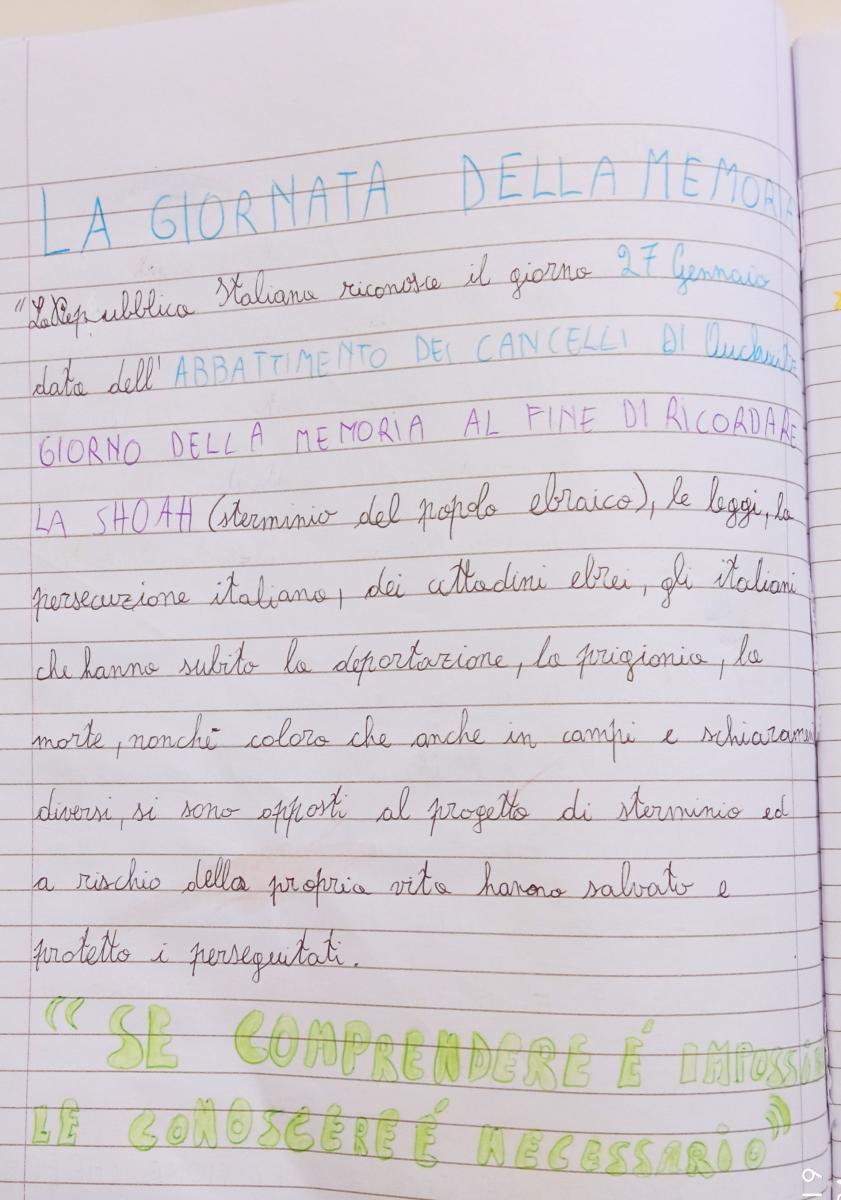 LA GIORNATA DELLA MEMORIA
"La Repubblica Italiana riconosce il giorno 27 Gennaio
data dell'ABBATTIMENTO DEI CANCELLI DI
GIORNO DELLA MEMORIA AL FINE DI RICORDARE
LA SHOAH (sterminio del popolo ebraico), le leggi, la
persecuzione italiana, dei cittadini ebrei, gli italiani
che hanno subito la deportazione, la prigionia, la
morte, nonchè coloro che anche in campi e schieramen
diversi, si sono opposti al progetto di sterminio ed
a rischio della propria vita hanno salvato e
protetto i perseguitati.
"SE COMPRENDERE É IMPOSSIB
LE CONOSCERE É NECESSARIO"
19